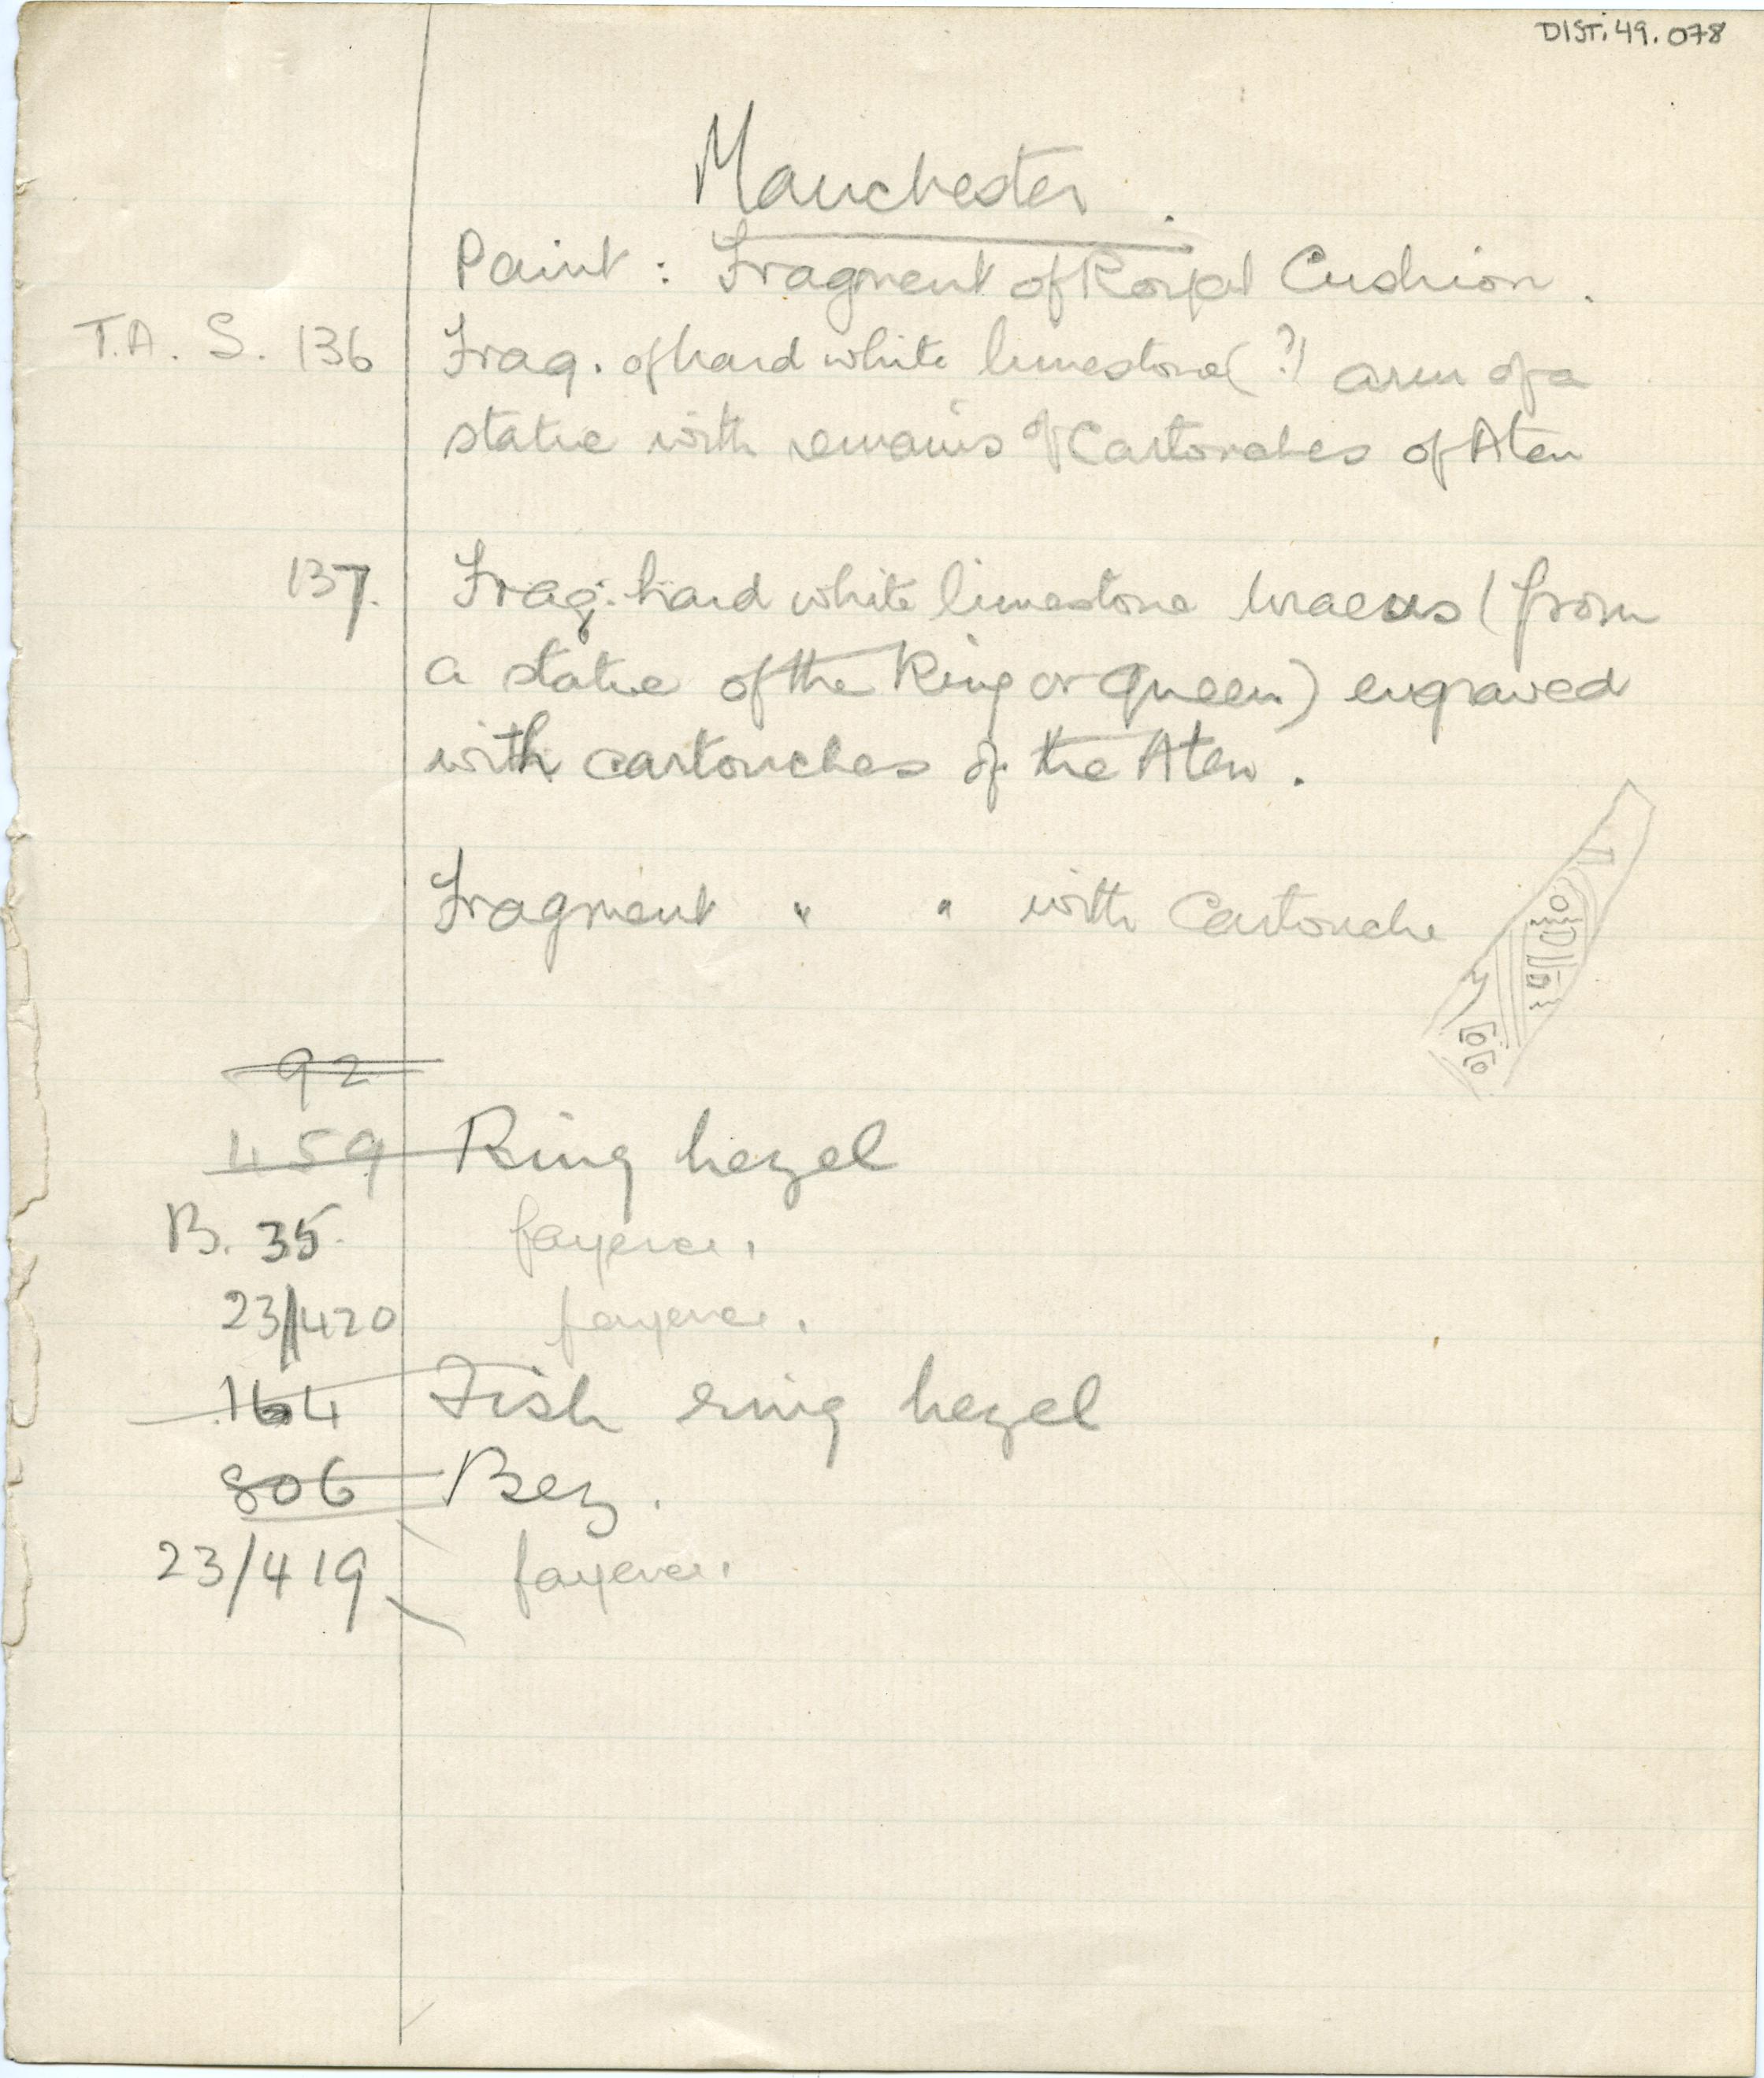 DIST.49.078
Manchester.
Paint: Fragment of Royal Cushion.
T.A. S. 136 Frag. of hard white limestone (?) arm of a
statue with remains of Cartouches of Aten
137. Frag. hard white limestone uraeus (from
a statue of the King or Queen) engraved
with cartouches of the Aten.
Fragment " " with Cartouche
92
459 Ring bezel
B. 35. fayence.
23/420 fayence.
164 Fish ring bezel
806 Bez.
23/419 fayence.